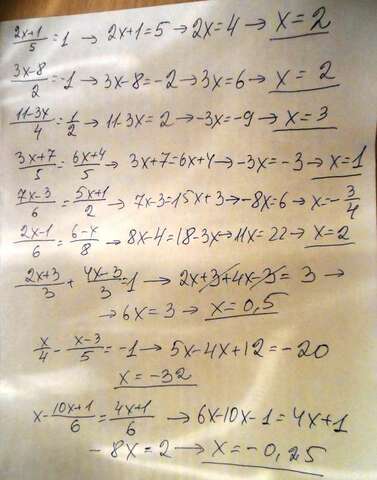 (2x+1)/5 = 1 → 2x+1=5 → 2x=4 → x=2
(3x-8)/2 = -1 → 3x-8=-2 → 3x=6 → x=2
(11-3x)/4 = 1/2 → 11-3x=2 → -3x=-9 → x=3
(3x+7)/5 = (6x+4)/5 → 3x+7=6x+4 → -3x=-3 → x=1
(7x-3)/6 = (5x+1)/2 → 7x-3=15x+3 → -8x=6 → x=-3/4
(2x-1)/6 = (6-x)/8 → 8x-4=18-3x → 11x=22 → x=2
(2x+3)/3 + (4x-3)/3 = 1 → 2x+3+4x-3=3 →
→ 6x=3 → x=0,5
x/4 - (x-3)/5 = -1 → 5x-4x+12=-20
x=-32
x-(10x+1)/6 = (4x+1)/6 → 6x-10x-1=4x+1
-8x=2 → x=-0,25